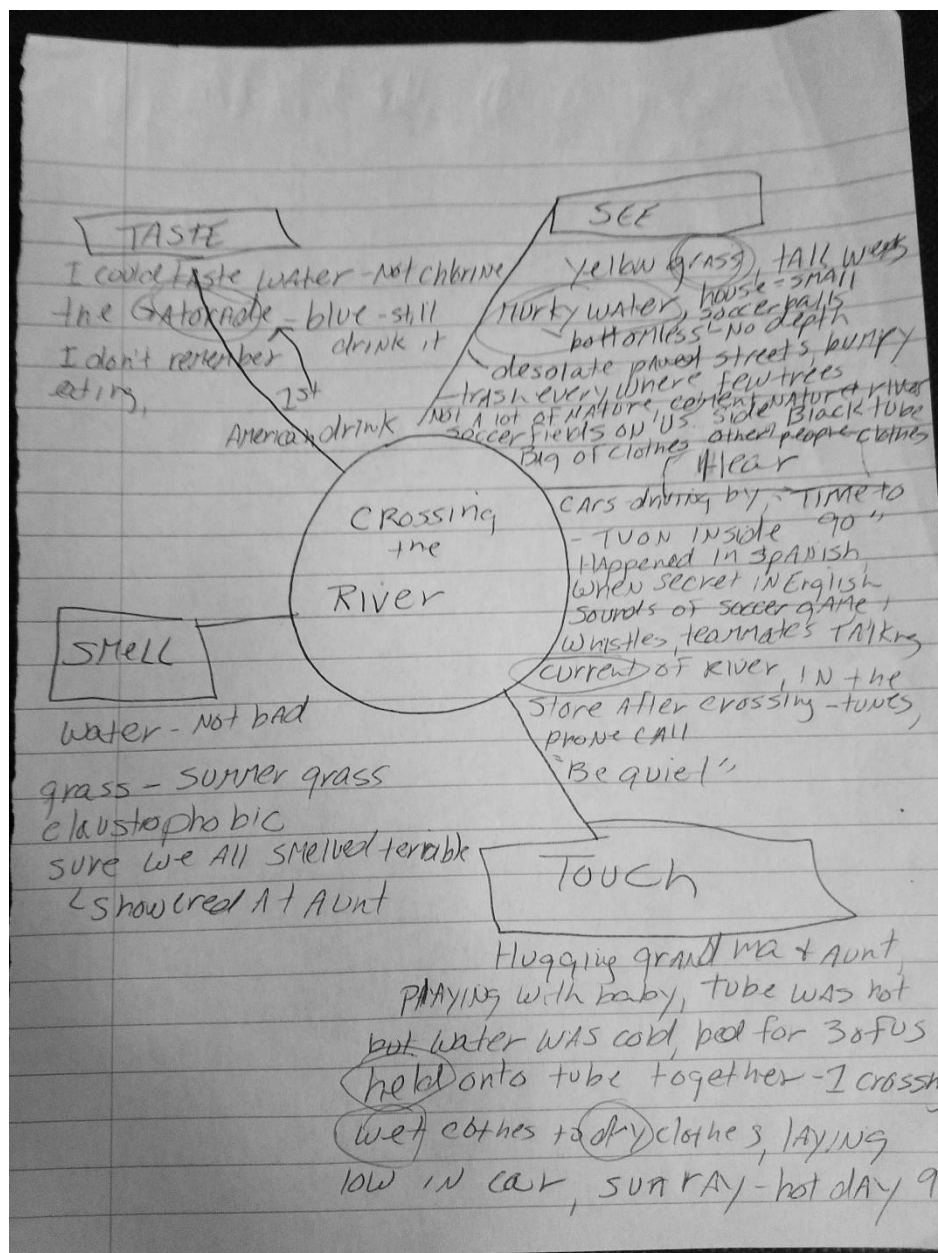 TASTE
I could taste water - Not chlorine
the GAtorAde - blue - still
drink it
I don't remember
eating,
1st
American drink
SEE
Yellow grass, tall weeds
Murky water, house - small
soccer balls
bottomless - No depth
desolate paved streets, bumpy
trash everywhere, few trees
Not a lot of nature, cement, nature = river
soccer fields on US side Black tube
Bag of clothes other people - clothes
Hear
cars driving by, "Time to
go"
- TV on inside
Happened in Spanish,
When secret in English
Sounds of soccer game,
whistles, teammates talking
current of River, in the
store After crossing - tunes,
phone call
"Be quiet"
Crossing
the
River
SMell
water - Not bad
grass - summer grass
claustrophobic
sure we All smelled terrible
showered At Aunt
Touch
Hugging grandma & Aunt,
playing with baby, tube was hot
but water was cold, bed for 3 of us
held onto tube together - 1 crossing
wet clothes to dry clothes, laying
low in car, sun ray - hot day 9